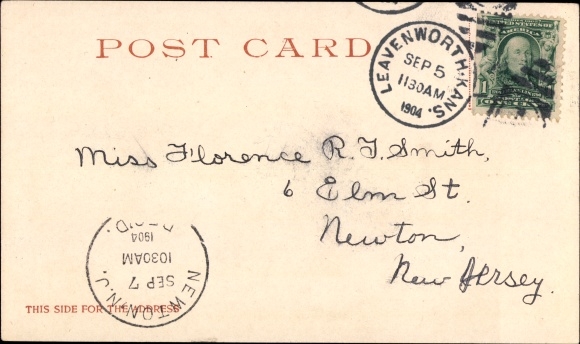 POST CARD
LEAVENWORTH, KANS.
SEP 5
1130 AM
1904
UNITED STATES OF
AMERICA
1
Miss Florence R. T. Smith,
6 Elm St.
Newton,
New Jersey.
NEWTON, N.J.
SEP 7
1030AM
1904
REC'D.
THIS SIDE FOR THE ADDRESS